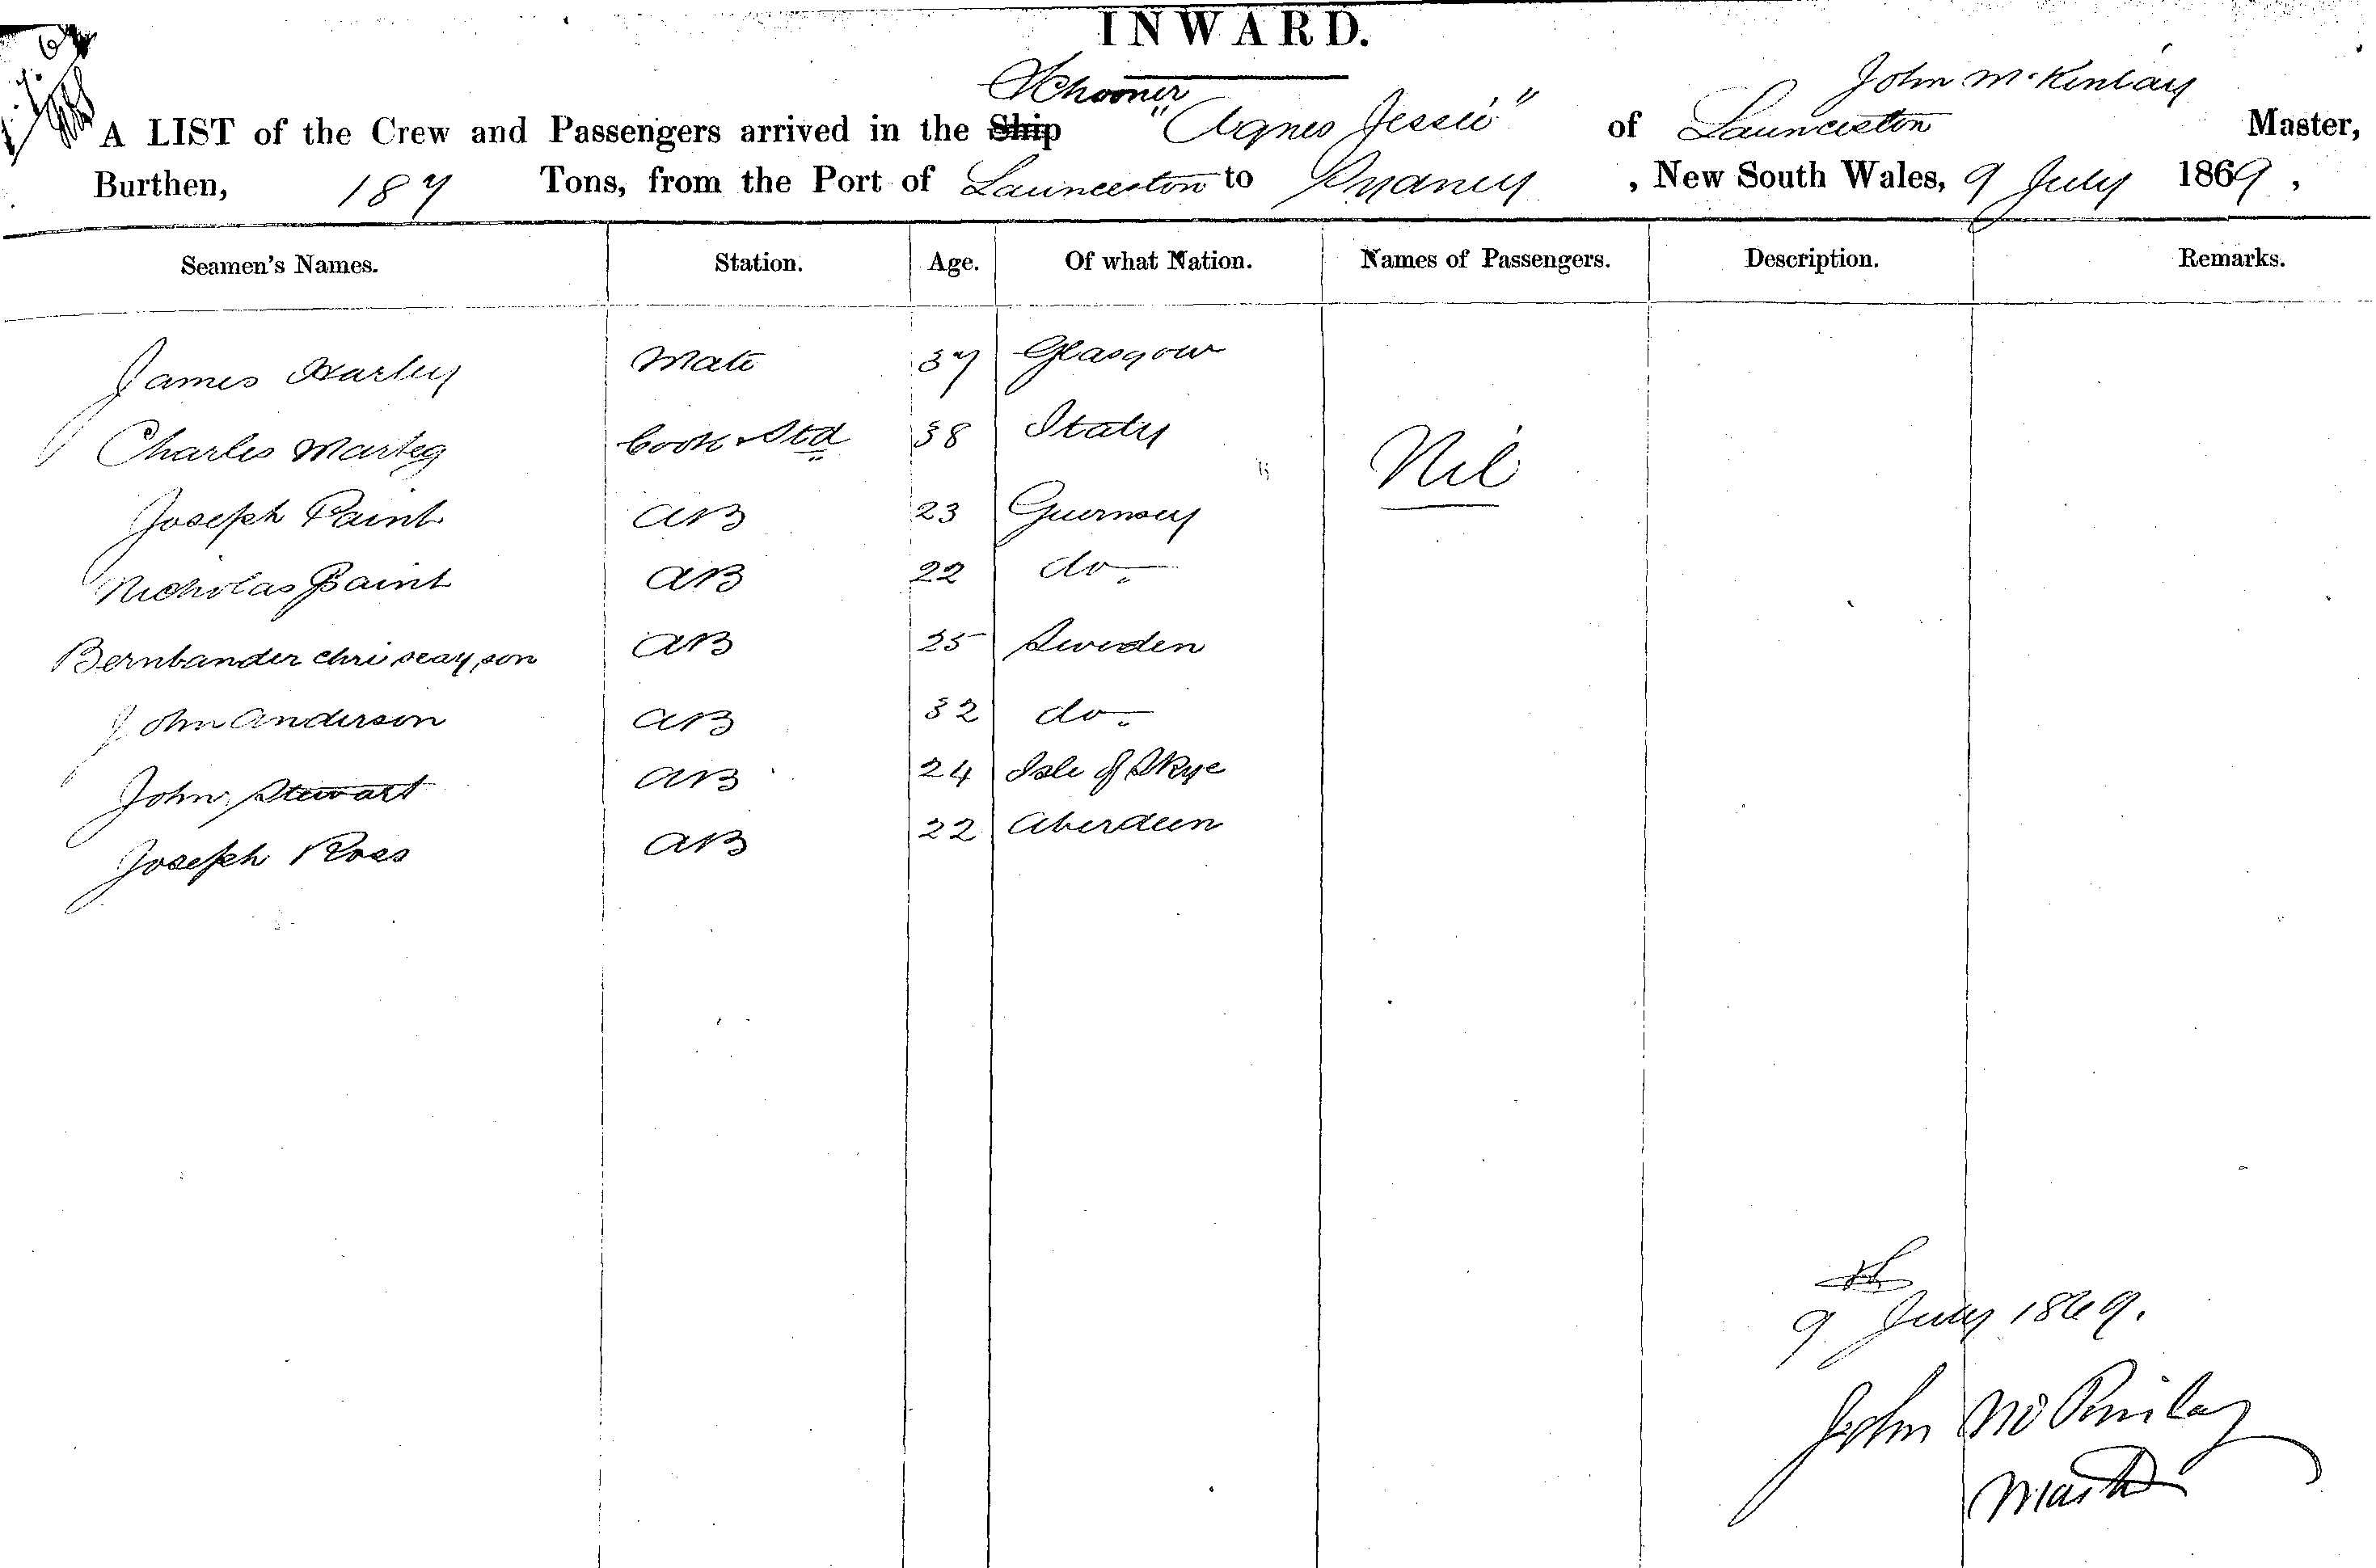 INWARD.
Schooner John McKinlay
A LIST of the Crew and Passengers arrived in the Ship "Agnes Jessie" of Launceston Master,
Burthen, 187 Tons, from the Port of Launceston to Sydney, New South Wales, 9 July 1869,
Seamen's Names. Station. Age. Of what Nation. Names of Passengers. Description. Remarks.
James Harley Mate 37 Glasgow
Charles Cook & Std 38 Italy Nil
Joseph Paint AB 23 Guernsey
Nicholas Paint AB 22 do.
AB 25 Sweden
John Anderson AB 32 do.
John Stewart AB 24 Isle of Skye
Joseph Ross AB 22 Aberdeen
9 July 1869.
John McKinlay
Master